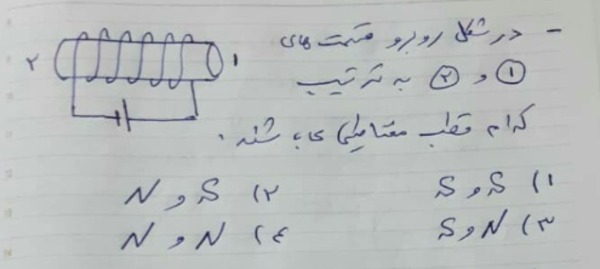 - در شکل روبرو قسمت های
① و ② به ترتیب
کدام قطب مغناطیسی می باشند.
۱) S و S ۲) S و N
۳) N و S ۴) N و N
۲ ۱